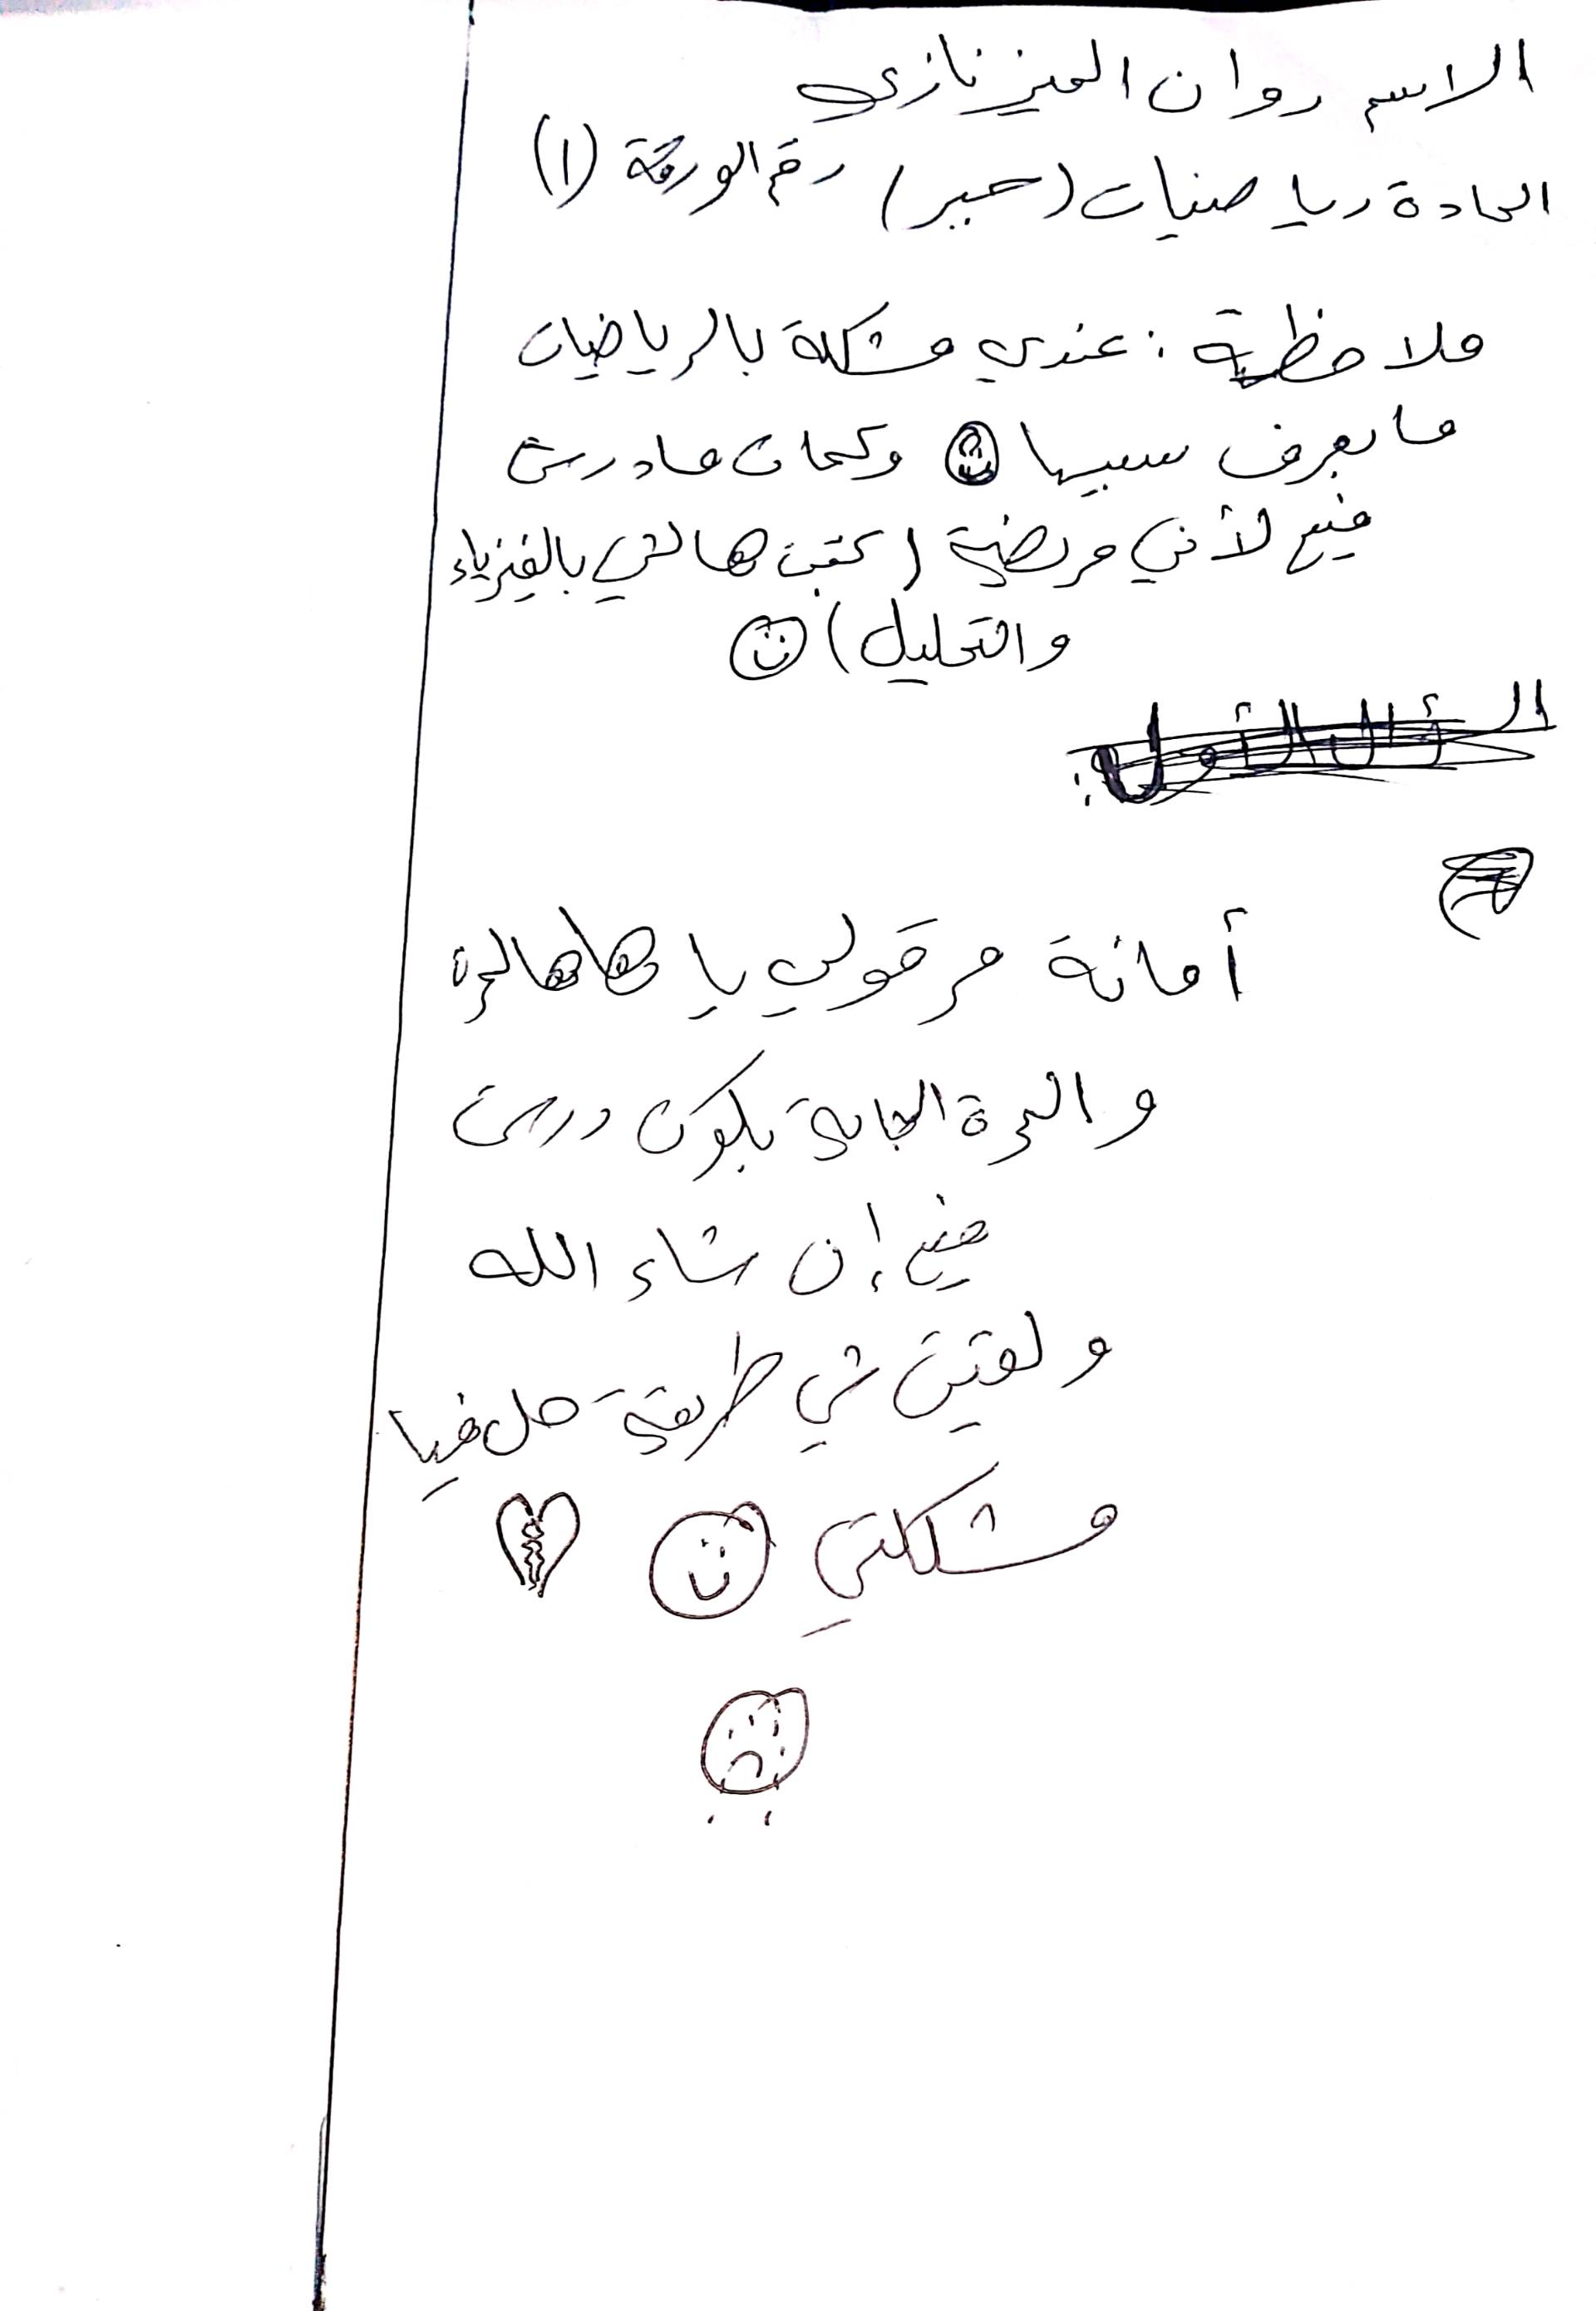 الاسم روان الميزنازي
المادة رياضيات (جبر) رقم الورقة (١)
ملاحظة : عندي مشكلة بالرياضيات
ما بعرف سببها وكمان ما درست
منيح لأني مريضة (كتبت هالشي بالفيزياء
والتحليل)
أمانة مرقولي ياها هالمرة
والمرة الجاية بكون درست
منيح إن شاء الله
ولقيت شي طريقة حل فيها
مشكلتي